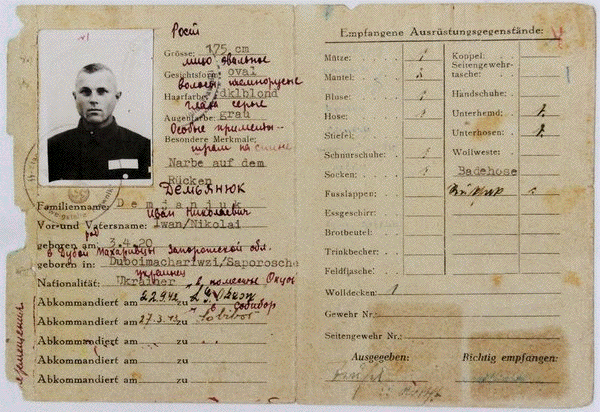 Рост
Grösse: 175 cm
лицо овальное
Gesichtsform: oval
волосы темнорусые
Haarfarbe: dklblond
глаза серые
Augenfarbe: grau
Особые приметы-
Besondere Merkmale:
шрам на спине
Narbe auf dem
Rücken
Демьянюк
Familienname: Demjanjuk
Иван Николаевич
Vor-und Vatersname: Iwan/Nikolai
род
geboren am 3.4.20
в Запорожской обл.
geboren in: Duboimachariwzi/Saporosche
украинец
Nationalität: Ukrainer
Abkommandiert am 22.9.42 zu L.G.
в Собибор
Abkommandiert am 27.3.43 zu Sobibor
Abkommandiert am zu
Abkommandiert am zu
Abkommandiert am zu
Empfangene Ausrüstungsgegenstände:
Mütze: 1
Mantel:
Bluse: 1
Hose: 1
Stiefel:
Schnurschuhe:
Socken:
Fusslappen:
Essgeschirr:
Brotbeutel:
Trinkbecher:
Feldflasche:
Wolldecken: 1
Gewehr Nr.:
Seitengewehr Nr.:
Koppel:
Seitengewehr-
tasche:
Handschuhe:
Unterhemd:
Unterhosen:
Wollweste:
Badehose
Ausgegeben:
Richtig empfangen: